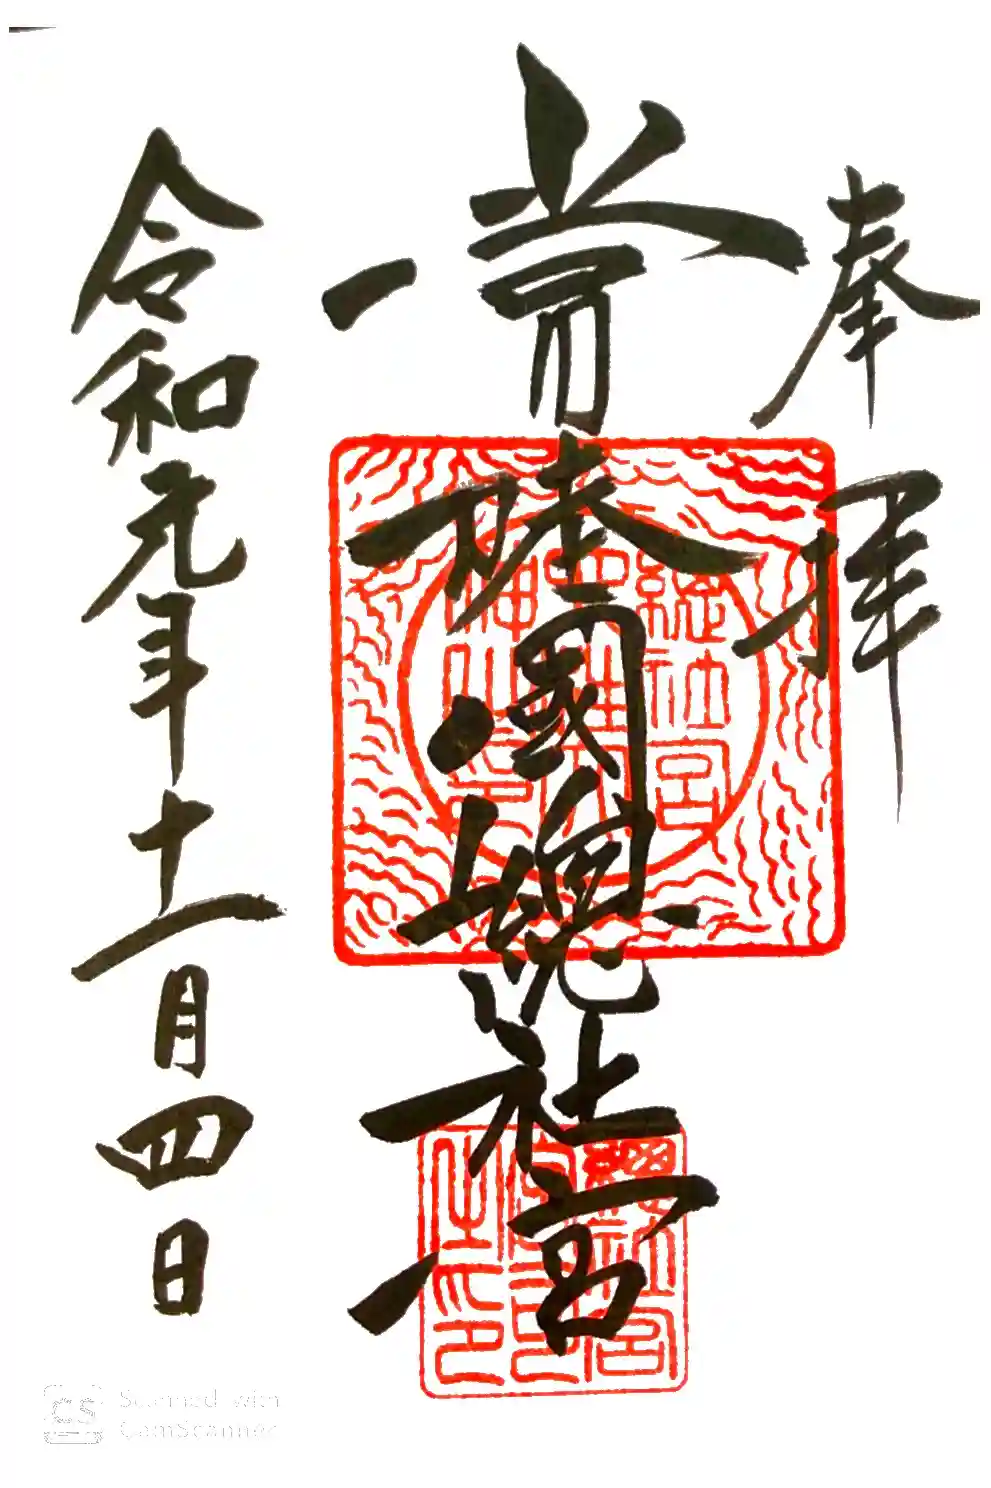 奉拝
常陸國總社宮
總社宮
令和元年十一月四日
Scanned with
CamScanner